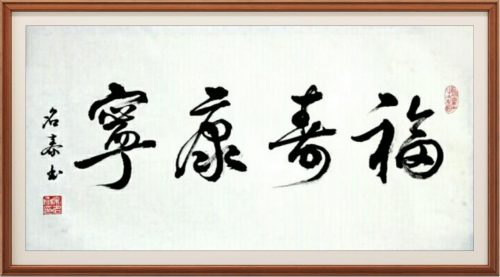 福壽康寧
名泰书